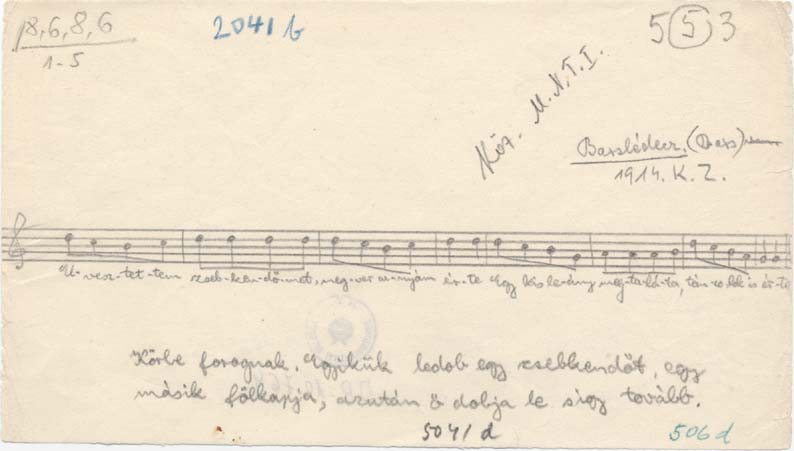 8,6,8,6
1-5
2041 b
5 5 3
Köz. M.N.T.I.
Barslédecz, (Bars)
1914. K. Z.
El-vesz-tet-tem zseb-ken-dő-met, meg-ver a-nyám ér-te Egy kis le-ány meg-ta-lá-ta,
Körbe forognak. Egyikük ledob egy zsebkendőt, egy
másik fölkapja, azután ő dobja le s így tovább.
5041 d
506 d